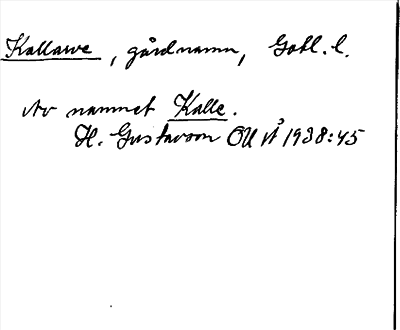 Kallawe, gårdnamn, Gotl. l.
Av namnet Kalle.
H. Gustavson OUÅ 1938:45